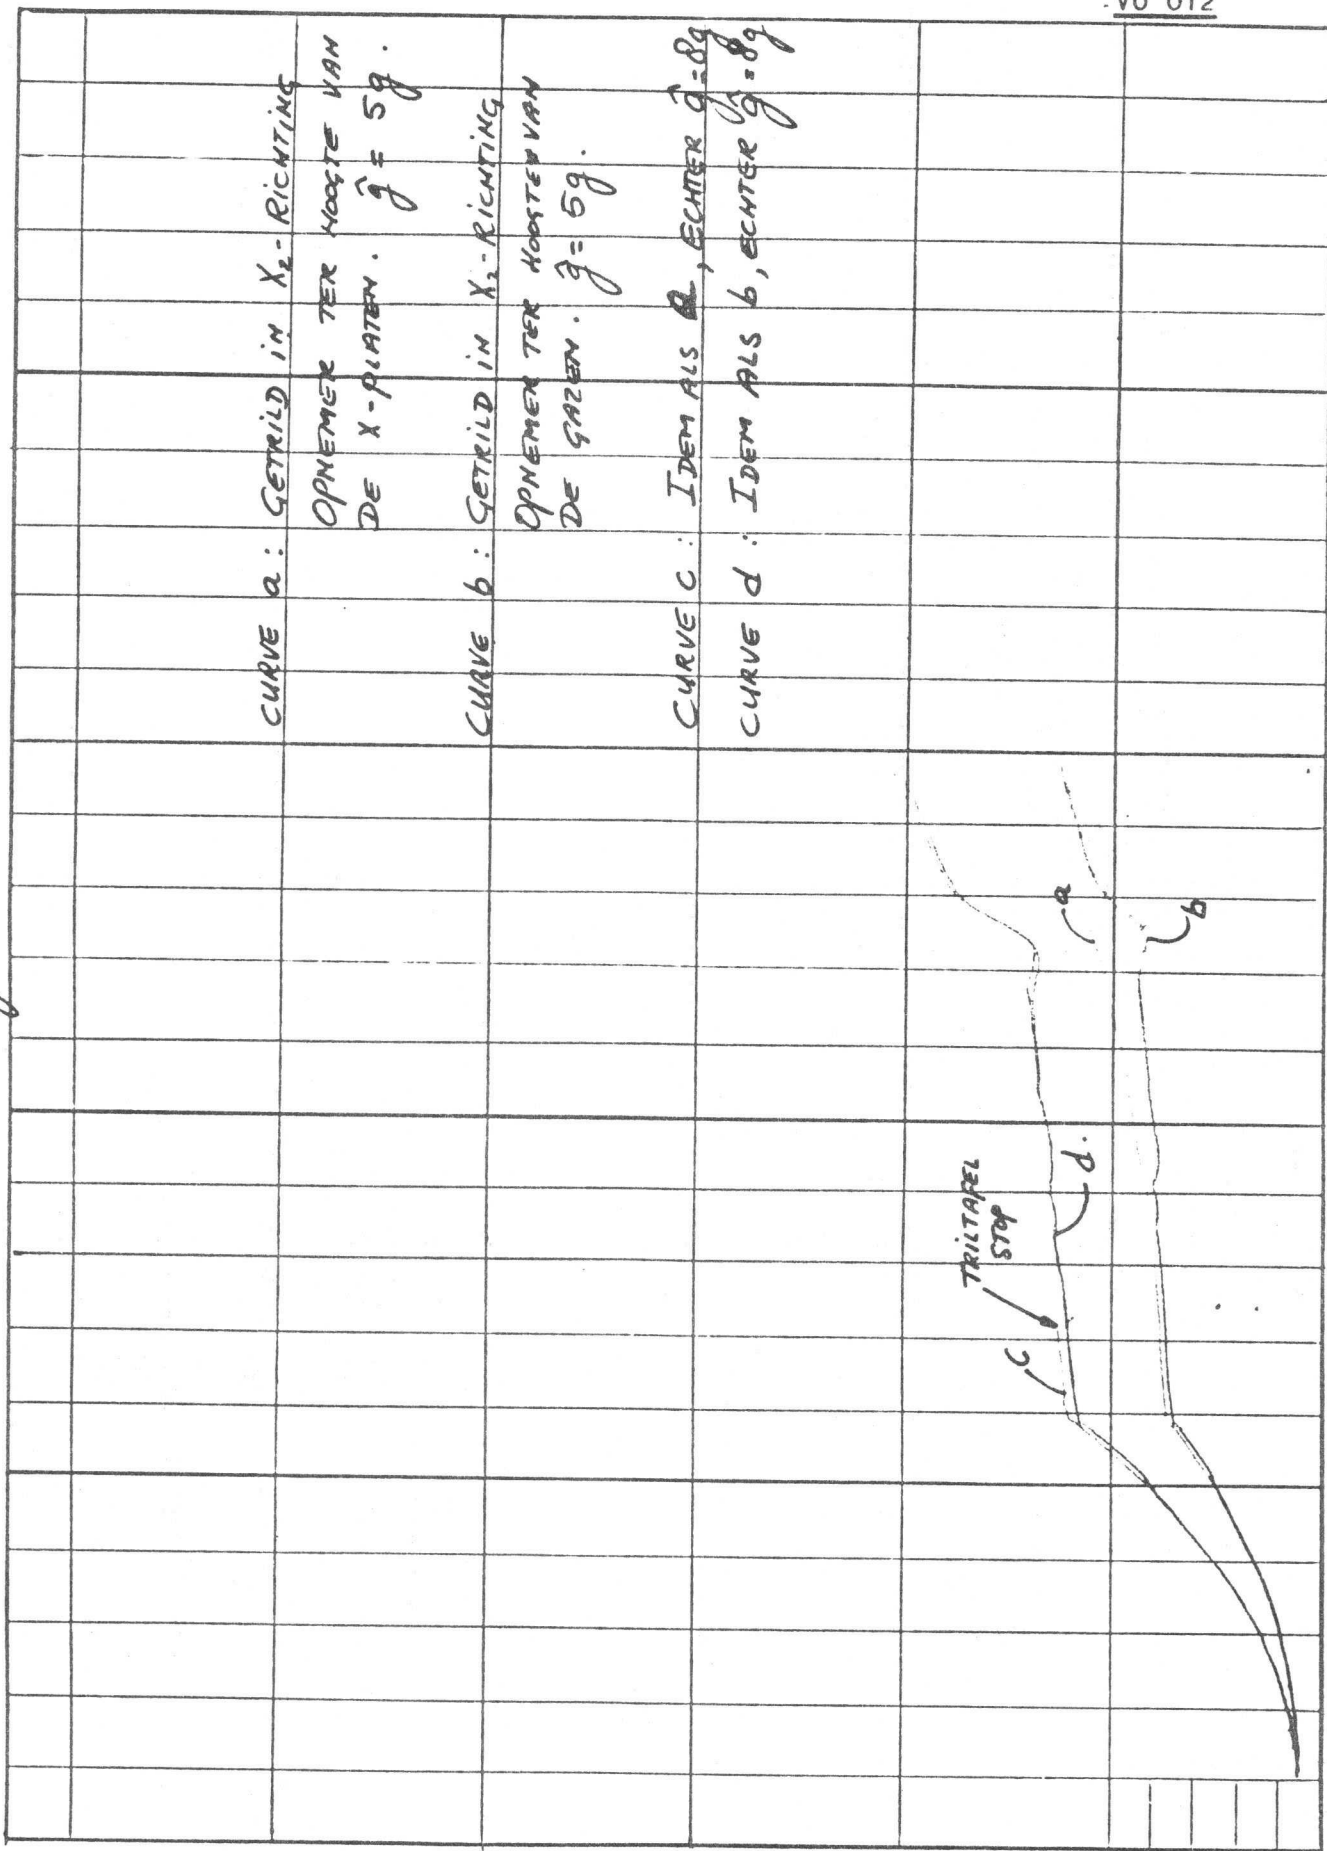 VG 012
CURVE a: GETRILD IN X₂-RICHTING
OPNEMER TER HOOGTE VAN
DE X-PLATEN. ĝ = 5g.
CURVE b: GETRILD IN X₂-RICHTING
OPNEMER TER HOOGTE VAN
DE GAZEN. ĝ = 5g.
CURVE c: IDEM ALS a, ECHTER ĝ = 8g
CURVE d: IDEM ALS b, ECHTER ĝ = 8g
TRILTAFEL
STOP
c
d.
a
b